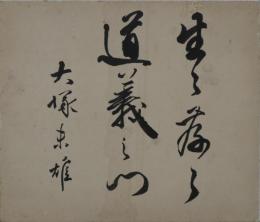 生々存々
道義之門
大塚末雄